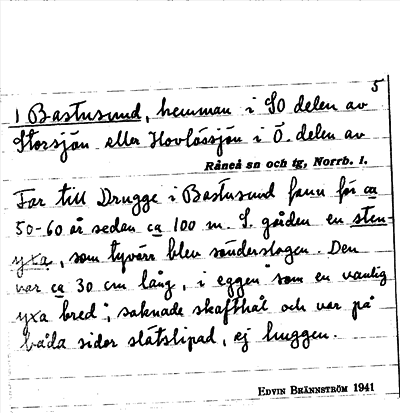 5
1 Bastusund, hemman i SO delen av
Storsjön eller Hovlössjön i Ö. delen av
Råneå sn och tg, Norrb. l.
Far till Drugge i Bastusund fann för ca
50-60 år sedan ca 100 m. S. gården en sten-
yxa, som tyvärr blev sönderslagen. Den
var ca 30 cm lång, i eggen "som en vanlig
yxa bred"; saknade skafthål och var på
båda sidor slätslipad, ej huggen.
EDVIN BRÄNNSTRÖM 1941